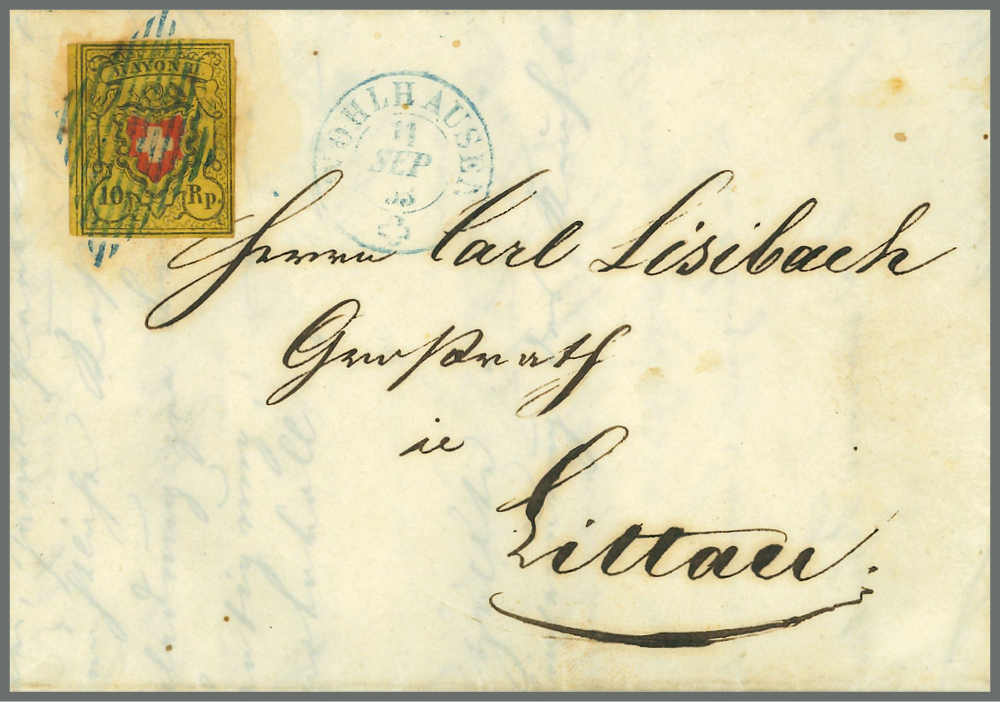 RAYON II
10 Rp.
WOHLHAUSEN
11
SEP
53
Herrn Carl Lisibach
Großrath
in
Littau.